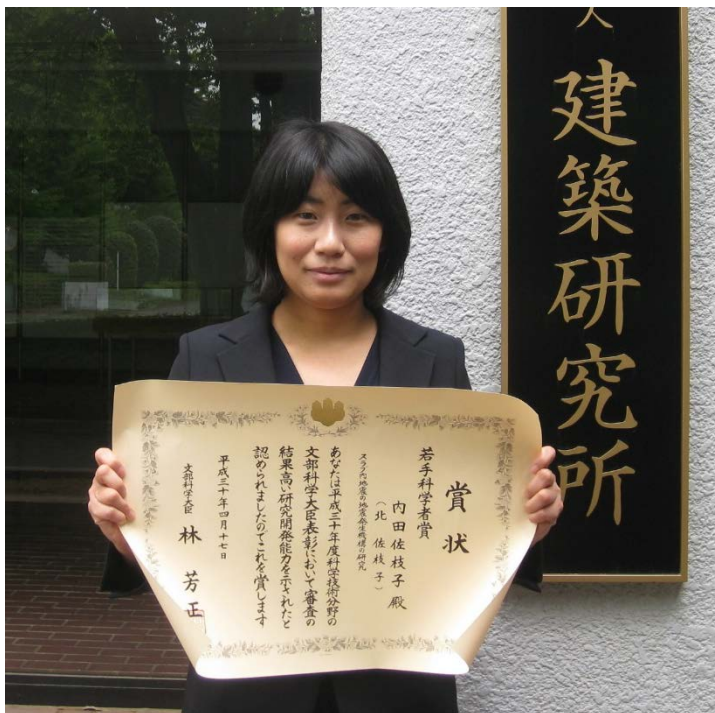 人
建築研究所
賞状
若手科学者賞
内田佐枝子殿
(北 佐枝子)
スラブ内地震の地震発生機構の研究
あなたは平成三十年度科学技術分野の
文部科学大臣表彰において審査の
結果高い研究開発能力を示されたと
認められましたのでこれを賞します
平成三十年四月十七日
文部科学大臣 林 芳正